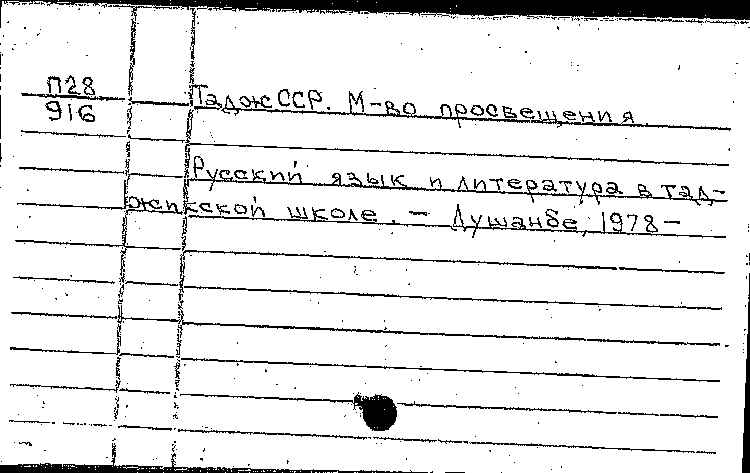 П28
916
ТаджССР. М-во просвещения.
Русский язык и литература в тад-
жикской школе. — Душанбе, 1978 —